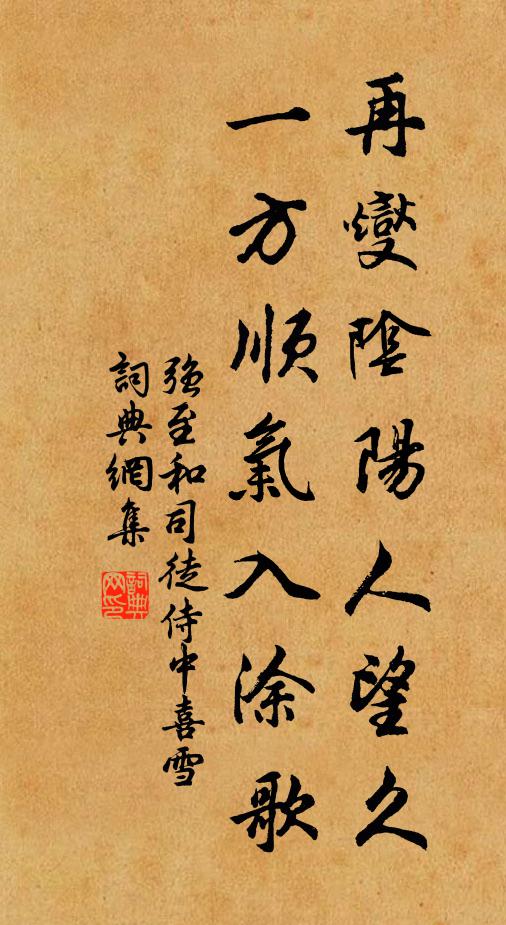 再燮陰陽人望久
一方順氣入涂歌
強至和司徒侍中喜雪
詞典網集
詞典网印